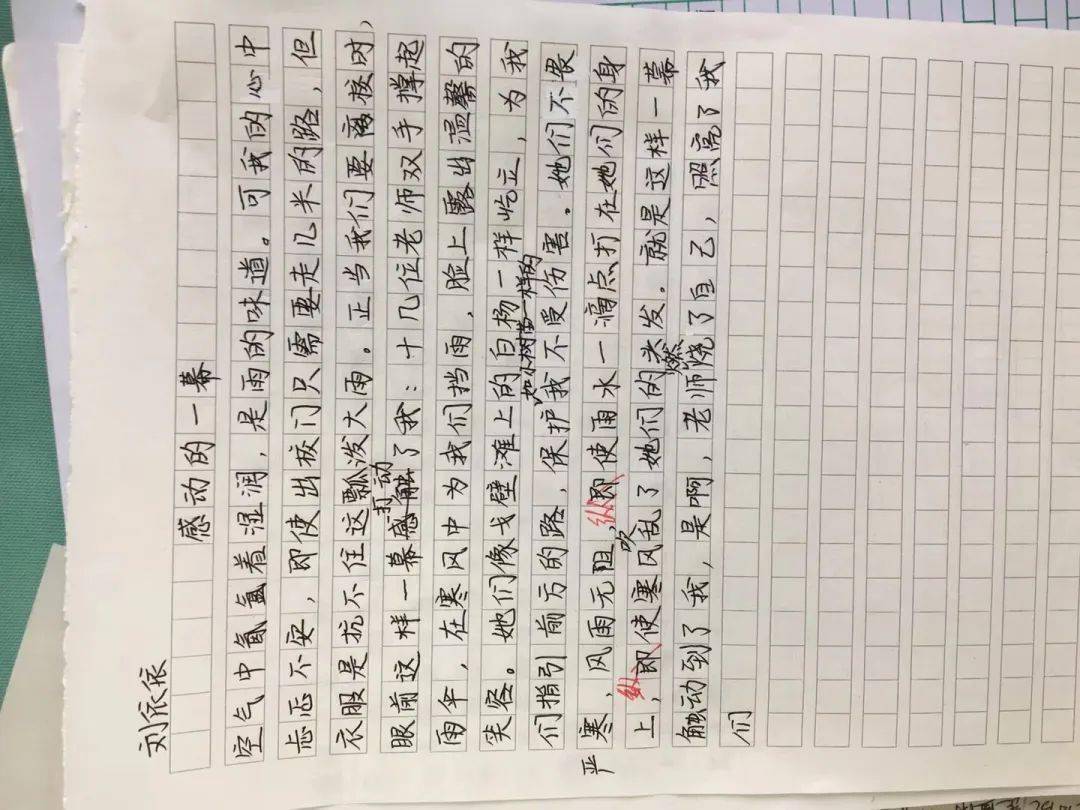 刘依依
感动的一幕
空气中氤氲着湿润，是雨的味道。可我的心中
忐忑不安，即使出校门只需要走几米的路，但
衣服是抗不住这瓢泼大雨。正当我们要离校时，
眼前这样一幕打动了我：十几位老师双手撑起
雨伞，在寒风中为我们挡雨，脸上露出温馨的
笑容。她们像戈壁滩上的白杨一样屹立，为我
们指引前方的路，保护如小树苗一样的我不受伤害。她们不畏
严寒，风雨无阻，纵使雨水一滴点打在她们的身
上，纵使寒风吹乱了她们的头发。就是这样一幕
触动到了我，是啊，老师燃烧了自己，照亮了我
们